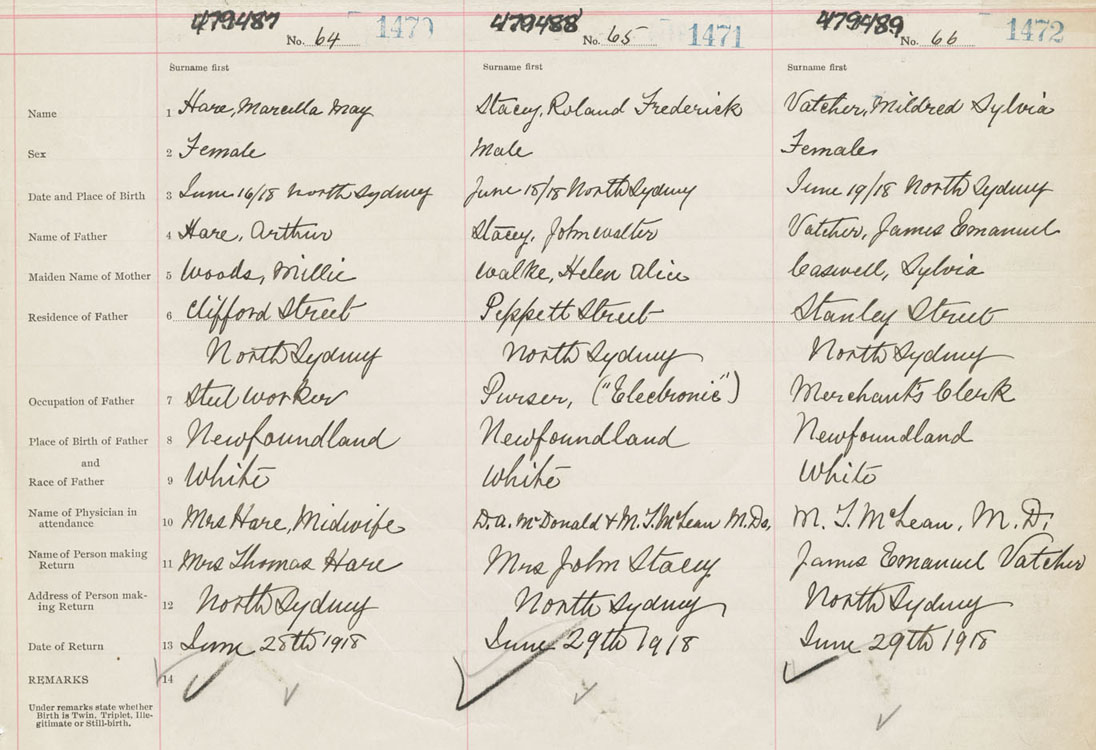 479487 479488 479489
No. 64 1470 No. 65 1471 No. 66 1472
Surname first Surname first Surname first
Name 1 Hare, Marcella May Stacey, Roland Frederick Vatcher, Mildred Sylvia
Sex 2 Female Male Female
Date and Place of Birth 3 June 16/18 North Sydney June 18/18 North Sydney June 19/18 North Sydney
Name of Father 4 Hare, Arthur Stacey, John walter Vatcher, James Emanuel
Maiden Name of Mother 5 Woods, Millie Walke, Helen Alice Caswell, Sylvia
Residence of Father 6 Clifford Street Peppett Street Stanley Street
North Sydney North Sydney North Sydney
Occupation of Father 7 Steel worker Purser, ("Electronic") Merchants Clerk
Place of Birth of Father 8 Newfoundland Newfoundland Newfoundland
and
Race of Father 9 White White White
Name of Physician in
attendance 10 Mrs Hare, Midwife D. A. McDonald & M. T. McLean M.Ds. M. T. McLean, M. D.
Name of Person making
Return 11 Mrs Thomas Hare Mrs John Stacey James Emanuel Vatcher
Address of Person mak-
ing Return 12 North Sydney North Sydney North Sydney
Date of Return 13 June 28th 1918 June 29th 1918 June 29th 1918
REMARKS 14
Under remarks state whether
Birth is Twin, Triplet, Ille-
gitimate or Still-birth.